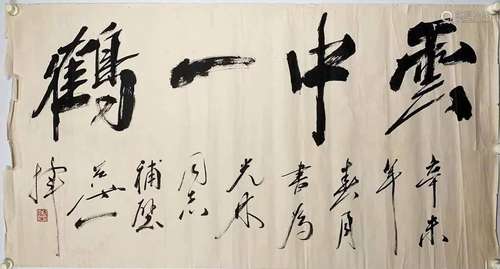 雲中一鶴
辛未
年
春月
書為
光林
同志
補壁